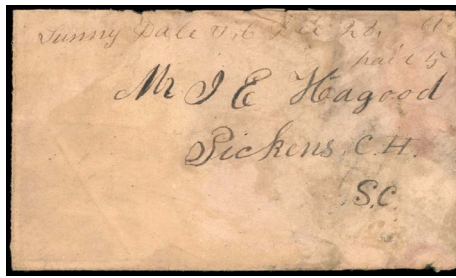 Sunny Dale
paid 5
Mr J E Hagood
Pickens, C.H.
S.C.